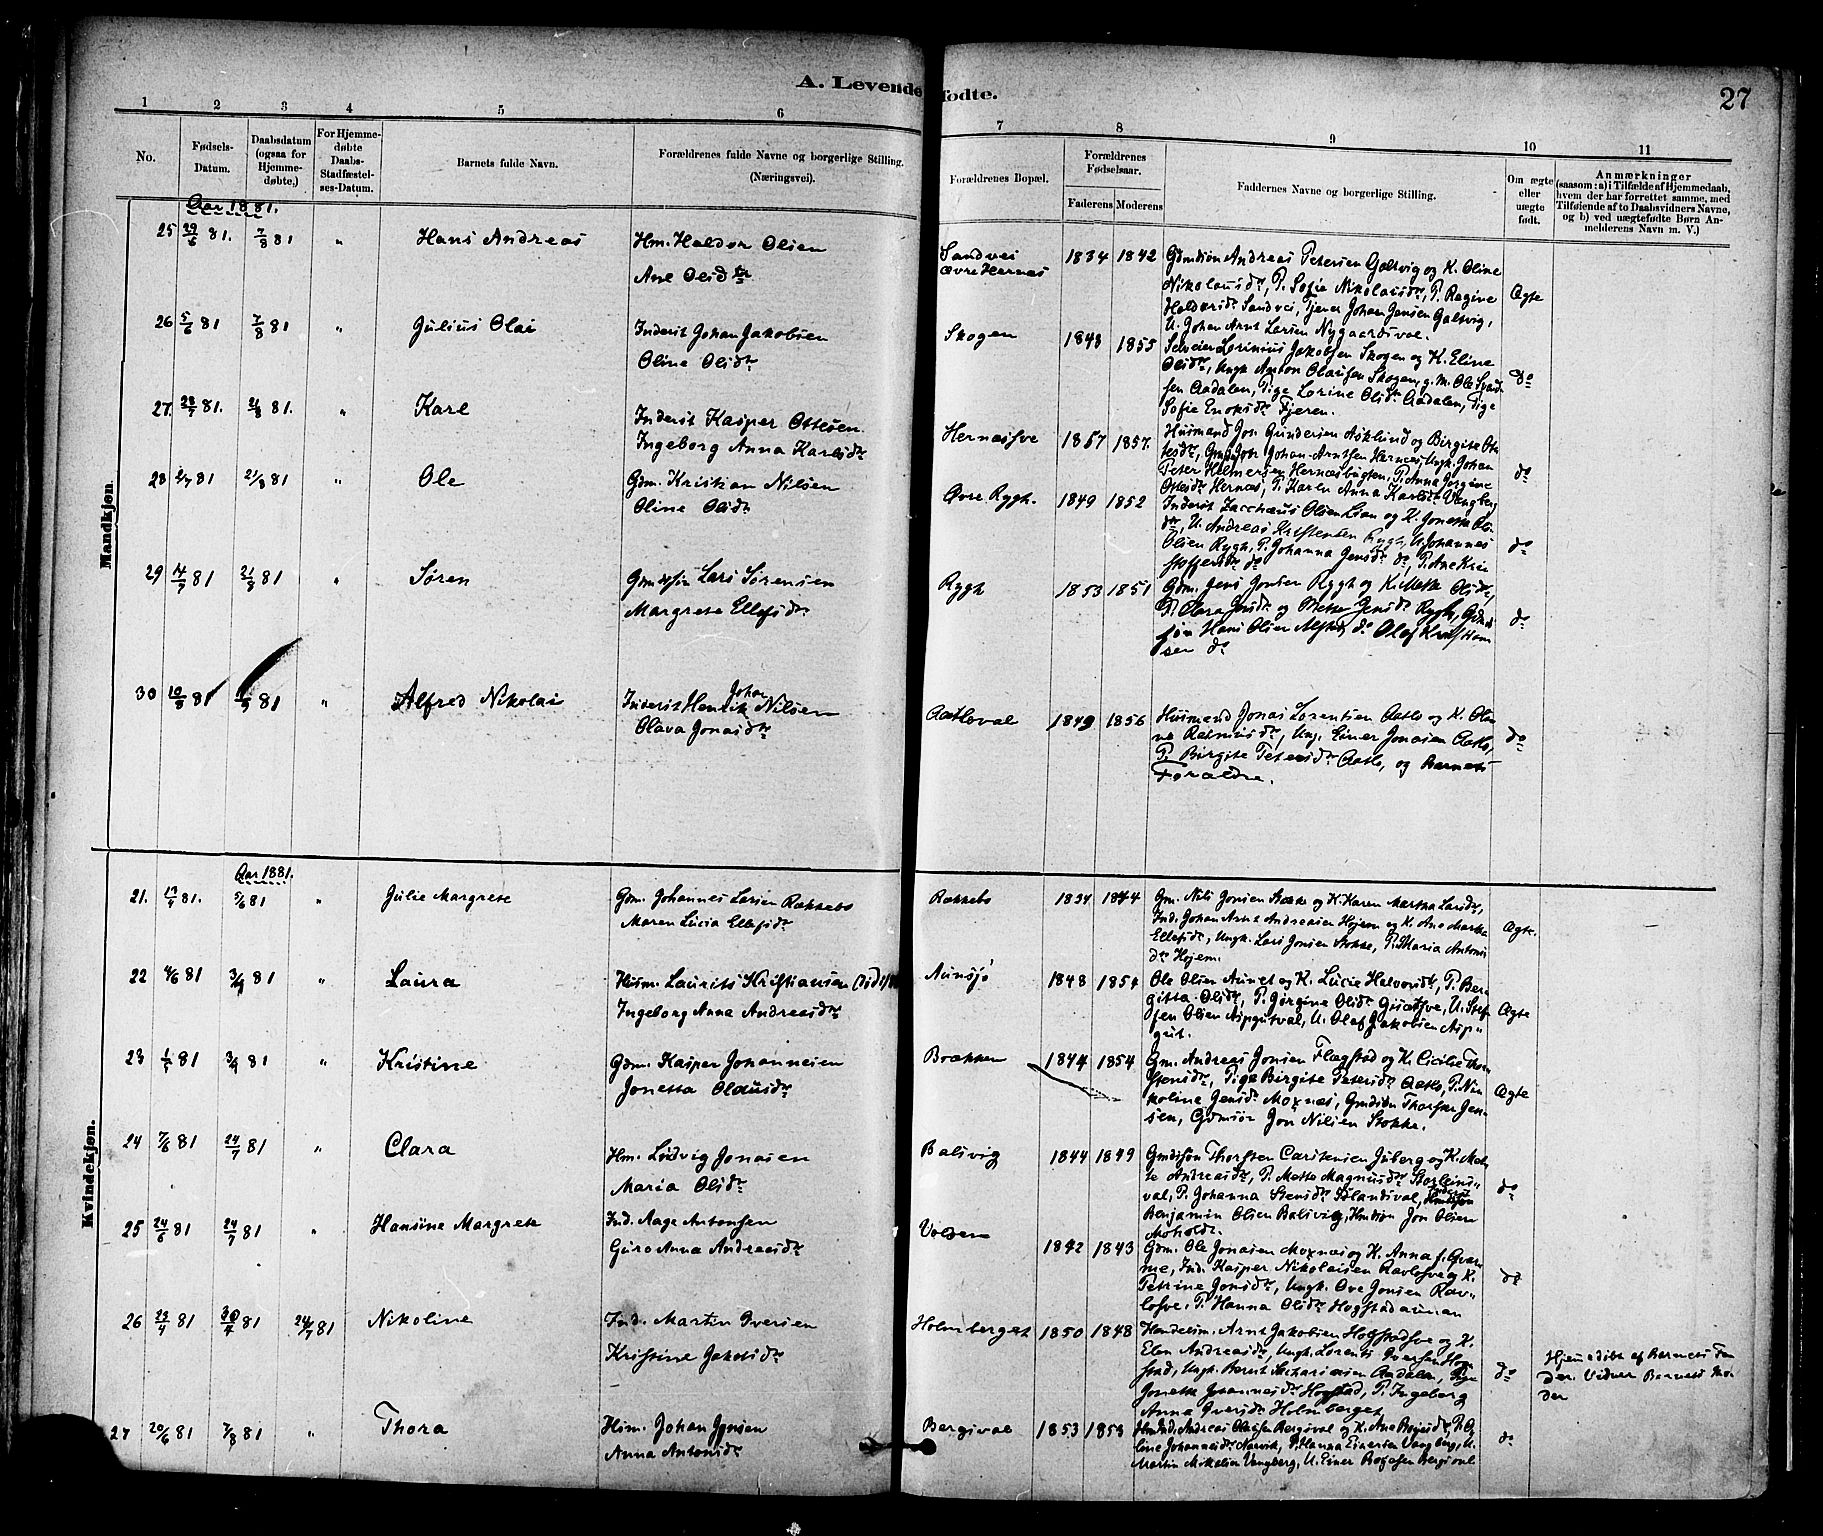 A. Levende fødte.
27
1 2 3 4 5 6 7 8 9 10 11
No.
Fødsels-Datum.
Daabsdatum (ogsaa for Hjemme-døbte.)
For Hjemme-døbte Daabs-Stadfæstel-ses-Datum.
Barnets fulde Navn.
Forældrenes fulde Navne og borgerlige Stilling.
(Næringsvei).
Forældrenes Bopæl.
Forældrenes Fødselsaar.
Faderens Moderens
Faddernes Navne og borgerlige Stilling.
Om ægte eller uægte født.
Anmærkninger
(saasom: a) i Tilfælde af Hjemmedaab,
hvem der har forrettet samme, med
Tilføiende af to Daabsvidners Navne,
og b) ved uægtefødte Børn An-
melderens Navn m. V.)
Mandkjøn.
Aar 1881.
25 29/6 81. 7/8 81 " Hans Andreas Hm. Haldor Olsen
Ane Olisdtr
Sandvei
øvre Hernes
1834 1842
Gdmdsøn Andreas Petersen Galtvig og K. Oline
Nikolausdtr, P. Sofie Nikolaisdtr, P. Regine
Haldorsdtr Sandvei, Tjener Johan Jensen Galtvig,
U. Johan Arnt Larsen Nygaardsval.
Ægte
26 5/6 81 7/8 81 " Julius Olai Inderst Johan Jakobsen
Oline Olisdtr
Skogen 1843 1855
Selveier Lorinius Jakobsen Skogen og K. Eline
Olisdtr, Ungk Anton Olausen Skogen, g. M. Ole
sen Aadalen, Pige Lorine Olisdtr Aadalen, Pige
Sofie Enoksdtr Fjeren.
do
27. 28/7 81. 21/8 81. " Karl Inderst Kasper Ottesen.
Ingeborg Anna Karlsdtr
Hernesve 1857 1857.
Husmand Jon Gundersen Asklund og Birgite Ot-
tesdtr, Johan Arntsen Hernes, Ungk. Johan
Peter Helmersen Hernesbugten, P. Anna Jørgine
Ottesdtr Hernes, P. Karen Anna Karlsdtr Vangberg
do
28 2/7 81 21/8 81 " Ole Gdm. Kristian Nilsen
Oline Olisdtr
Øvre Rygh. 1849 1852
Inderst Zacchæus Olsen Lian og K. Jonetta Ols-
dtr, U. Andreas Kristensen Rygh, U. Johannes
Olsen Rygh, P. Johanna Jensdtr do, P. Ane Kris-
stoffersdtr do
do
29 14/7 81 21/8 81 " Søren Gmdssøn Lars Sørensen
Margrete Ellefsdtr
Rygh 1853 1851
Gdm. Jens Jonsen Rygh og K. Mette Olisdtr,
P. Clara Jensdtr og Mette Jensdtr Rygh, Gdmds-
søn Hans Olsen Alstad do Olaf Han-
sen do
do
30 10/8 81 81 " Alfred Nikolai Inderst Henrik Johan Nilsen
Olava Jonasdtr
Aatloval 1849 1856
Husmand Jonas Lorentsen Aatlo og K. Oli-
na Rasmusdtr, Ung. Einer Jonasen Aatlo,
P. Birgite Petersdtr Aatlo, og Barnets
Forældre.
do
Kvindekjøn.
Aar 1881.
21. 17/4 81. 5/6 81 " Julie Margrete Gdm. Johannes Larsen Rækkebo
Maren Lucia Ellefsdtr
Rækkebo 1834 1844
Gm. Nils Jonsen Stokke og K. Karen Martha Larsdtr,
Ind. Johan Arnt Andreasen Hojem og K. Ane Martha
Ellefsdtr, Ungk. Lars Jonsen Stokke, P. Maria Antons
dtr Hojem.
Ægte.
22 4/6 81 3/7 81 " Laura Husm. Laurits Kristiansen
Ingeborg Anna Andreasdtr
Aunsjø 1848 1854
Ole Olsen Aunet og K. Lucie Halvorsdtr, P. Ber-
gitta Olisdtr, P. Jørgine Olisdtr, U. Stef-
fen Olsen Aspgutval, U. Olaf Jakobsen Asp-
gut.
Ægte
23 1/5 81 3/7 81 " Kristine Gdm. Kasper Johannesen
Jonetta Olausdtr
Brækken 1844 1854
Gm. Andreas Jonsen Flægstad og K. Cicilie Thor-
stensdtr, Pige Birgite Petersdtr Aatlo, P. Ni-
koline Jensdtr Moxnæs, Gmdsøn Thorstn Jen-
sen, Gdmsøn Jon Nilsen Stokke.
Ægte
24 7/6 81 24/7 81 " Clara Hm. Lodvig Jonasen
Maria Olisdtr
Balsvig 1844 1849
Gmdssøn Thorsten Carstensen Juberg og K. Met-
te Andreasdtr, P. Mette Magnusdtr
val, P. Johanna Stensdtr Solandsval, Inderst
Benjamin Olsen Balsvig, Hmdsøn Jon Olsen
Moholdt.
do
25 24/6 81 24/7 81 " Hansine Margrete Ind. Aage Antonsen
Guro Anna Andreasdtr
Volden 1842 1843
Gdm. Ole Jonasen Moxnæs og K. Anna f. Gvar-
me, Ind. Kasper Nikolaisen Ravlosve og K.
Petrine Jonsdtr, Ungk. Ove Jonsen Rav-
losve. P. Hanna Olisdtr Hogstadaunan
do
26 23/4 81 30/4 81 24/7 81 Nikoline Ind. Martin Iversen
Kristine Jakobsdtr
Holmberget 1850 1848
Handelsm. Arnt Jakobsen Hogstadsve og K.
Elen Andreasdtr, Ungk. Lorents Iversen Hog-
stad, Ungk. Bernt Zachariasen Aadalen, Pige
Jonetta Johannesdtr Hogstad, P. Ingeborg
Anna Iversdtr Holmberget
do
Hjemmedøbt af Barnets Fa-
der. Vidner Barnets Mo-
der
27 20/6 81 7/8 81 " Thora Hsm. Johan Jensen
Anna Antonsdtr
Bergsval 1853 1853
Andreas Olausen Bergsval og K. Ane
line Johannesdtr Narvik, P. Hanna Einersen Vangberg, U.
Martin Mikalsen Vangberg, U. Einer Bergsval
do